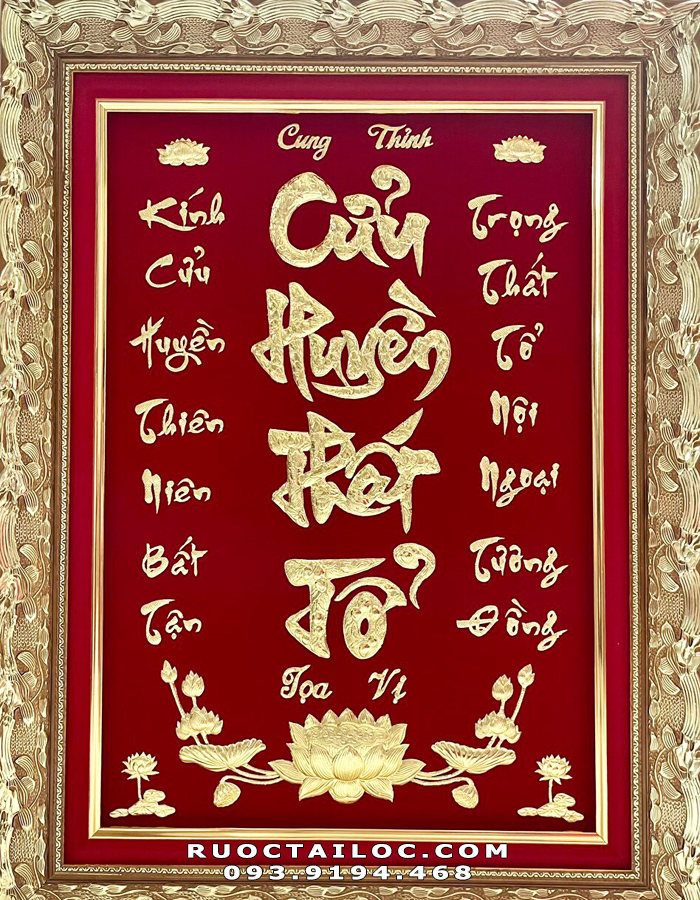 Cung Thỉnh
Cửu
Huyền
Thất
Tổ
Tọa Vị
Kính
Cửu
Huyền
Thiên
Niên
Bất
Tận
Trọng
Thất
Tổ
Nội
Ngoại
Tường
Đồng
RUOCTAILOC.COM
093.9194.468